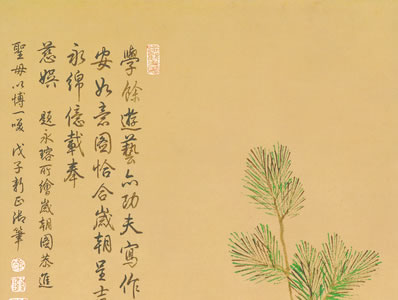 學餘遊藝亦功夫寫作
安如意圖恰合歲朝呈吉
永綿億載奉
慈娛 題永瑢所繪歲朝圖恭進
聖母以博一 戊子新正御筆